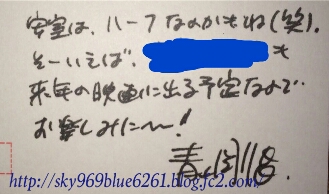 安室は、ハーフなのかもね(笑)。
そーいえば、も
来年の映画に出る予定なので
お楽しみに〜!
http://sky969blue6261.blog.fc2.com/